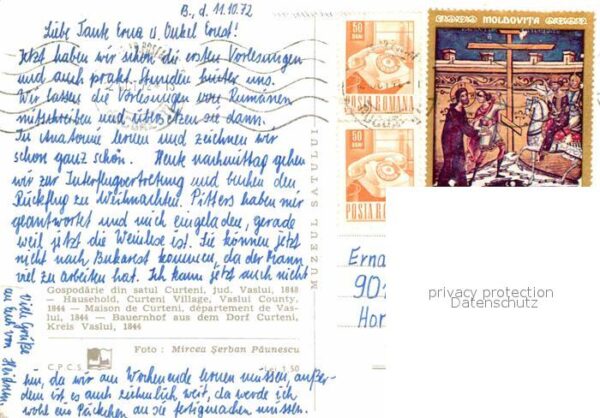 B., d. 11.10.72
Liebe Tante Erna u. Onkel Ernst!
Jetzt haben wir schon die ersten Vorlesungen
und auch prakt. Stunden hinter uns.
Wir lassen die Vorlesungen von Rumänen
mitschreiben und übersetzen sie dann.
In Anatomie lernen und zeichnen wir
schon ganz schön. Heute nachmittag gehen
wir zur Interflugvertretung und buchen den
Rückflug zu Weihnachten. Pitters haben mir
geantwortet und mich eingeladen, gerade
weil jetzt die Weinlese ist. Sie können jetzt
nicht nach Bukarest kommen, da der Mann
viel zu arbeiten hat. Ich kann jetzt auch nicht
hin, da wir am Wochenende lernen müssen, außer-
dem ist es auch ziemlich weit, da werde ich
wohl ein Päckchen an sie fertigmachen müssen.
Viele Grüße
an Euch von Heidrun
Gospodărie din satul Curteni, jud. Vaslui, 1848
— Hausehold, Curteni Village, Vaslui County,
1844 — Maison de Curteni, département de Vas-
lui, 1844 — Bauernhof aus dem Dorf Curteni,
Kreis Vaslui, 1844
Foto : Mircea Șerban Păunescu
C.P.C.S.
Lei 1,50
MUZEUL SATULUI
50
BANI
POȘTA ROMANA
50
BANI
POȘTA R
MOLDOVIȚA
Erna
901
Hor
privacy protection
Datenschutz